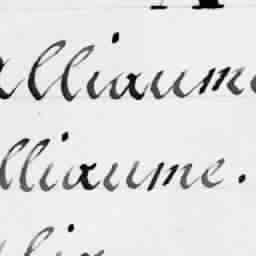 Alliaume
lliaume.
lix